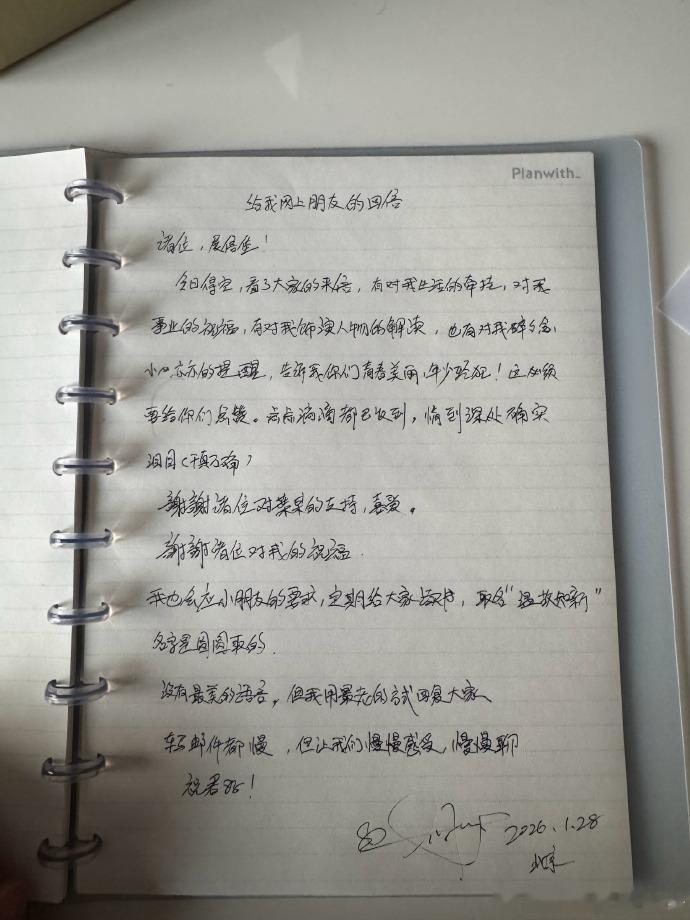 Planwith_
给我网上朋友的回信
诸位，展信佳！
今日得空，看了大家的来信，有对我生活的牵挂，对我
事业的祝福，有对我饰演人物的解读，也有对我碎
小的提醒，告诉我你们青春美丽，年少轻狂！这必须
要给你们点赞。点点滴滴都已收到，情到深处确实
泪目（千真万确）
謝謝诸位对某某的支持，喜爱。
謝謝诸位对我的祝福.
我也会应小朋友的要求，定期给大家，取名“温故知新”
名字是圆圆取的.
没有最美的语言，但我用最老的方式回复大家
车马邮件都慢，但让我们慢慢感受，慢慢聊
祝君好！
2026.1.28
北京